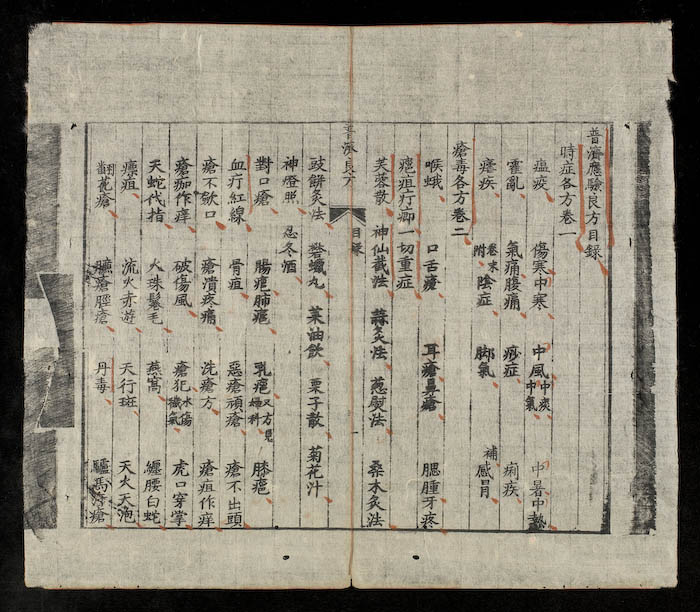 普濟應驗良方目錄
時症各方卷一
瘟疫 傷寒中寒 中風中痰中氣 中暑中熱
霍亂 氣痛腹痛 痧症 痢疾
瘧疾 卷末附陰症 脚氣 補感冒
瘡毒各方卷二
喉蛾 口舌瘡 耳瘡鼻瘡 腮腫牙疼
疽疔癤一切重症
芙蓉散 神仙截法 蒜灸法 蔥熨法 桑木灸法
普濟良方 目錄
豉餅灸法 礬蠟丸 菜油飲 栗子散 菊花汁
神燈照 忍冬酒
對口瘡 腸癰肺癰 乳癰又方見婦科 膝癰
血疔紅線 骨疽 惡瘡頑瘡 瘡不出頭
瘡不歛口 瘡潰疼痛 洗瘡方 瘡疽作痒
瘡痂作痒 破傷風 瘡犯水傷穢氣 虎口穿掌
天蛇代指 火珠鬈毛 燕窩 纏腰白蛇
瘭疽 流火赤遊 天行斑 天火天泡
翻花瘡 臁瘡脛瘡 丹毒 驢馬汗瘡